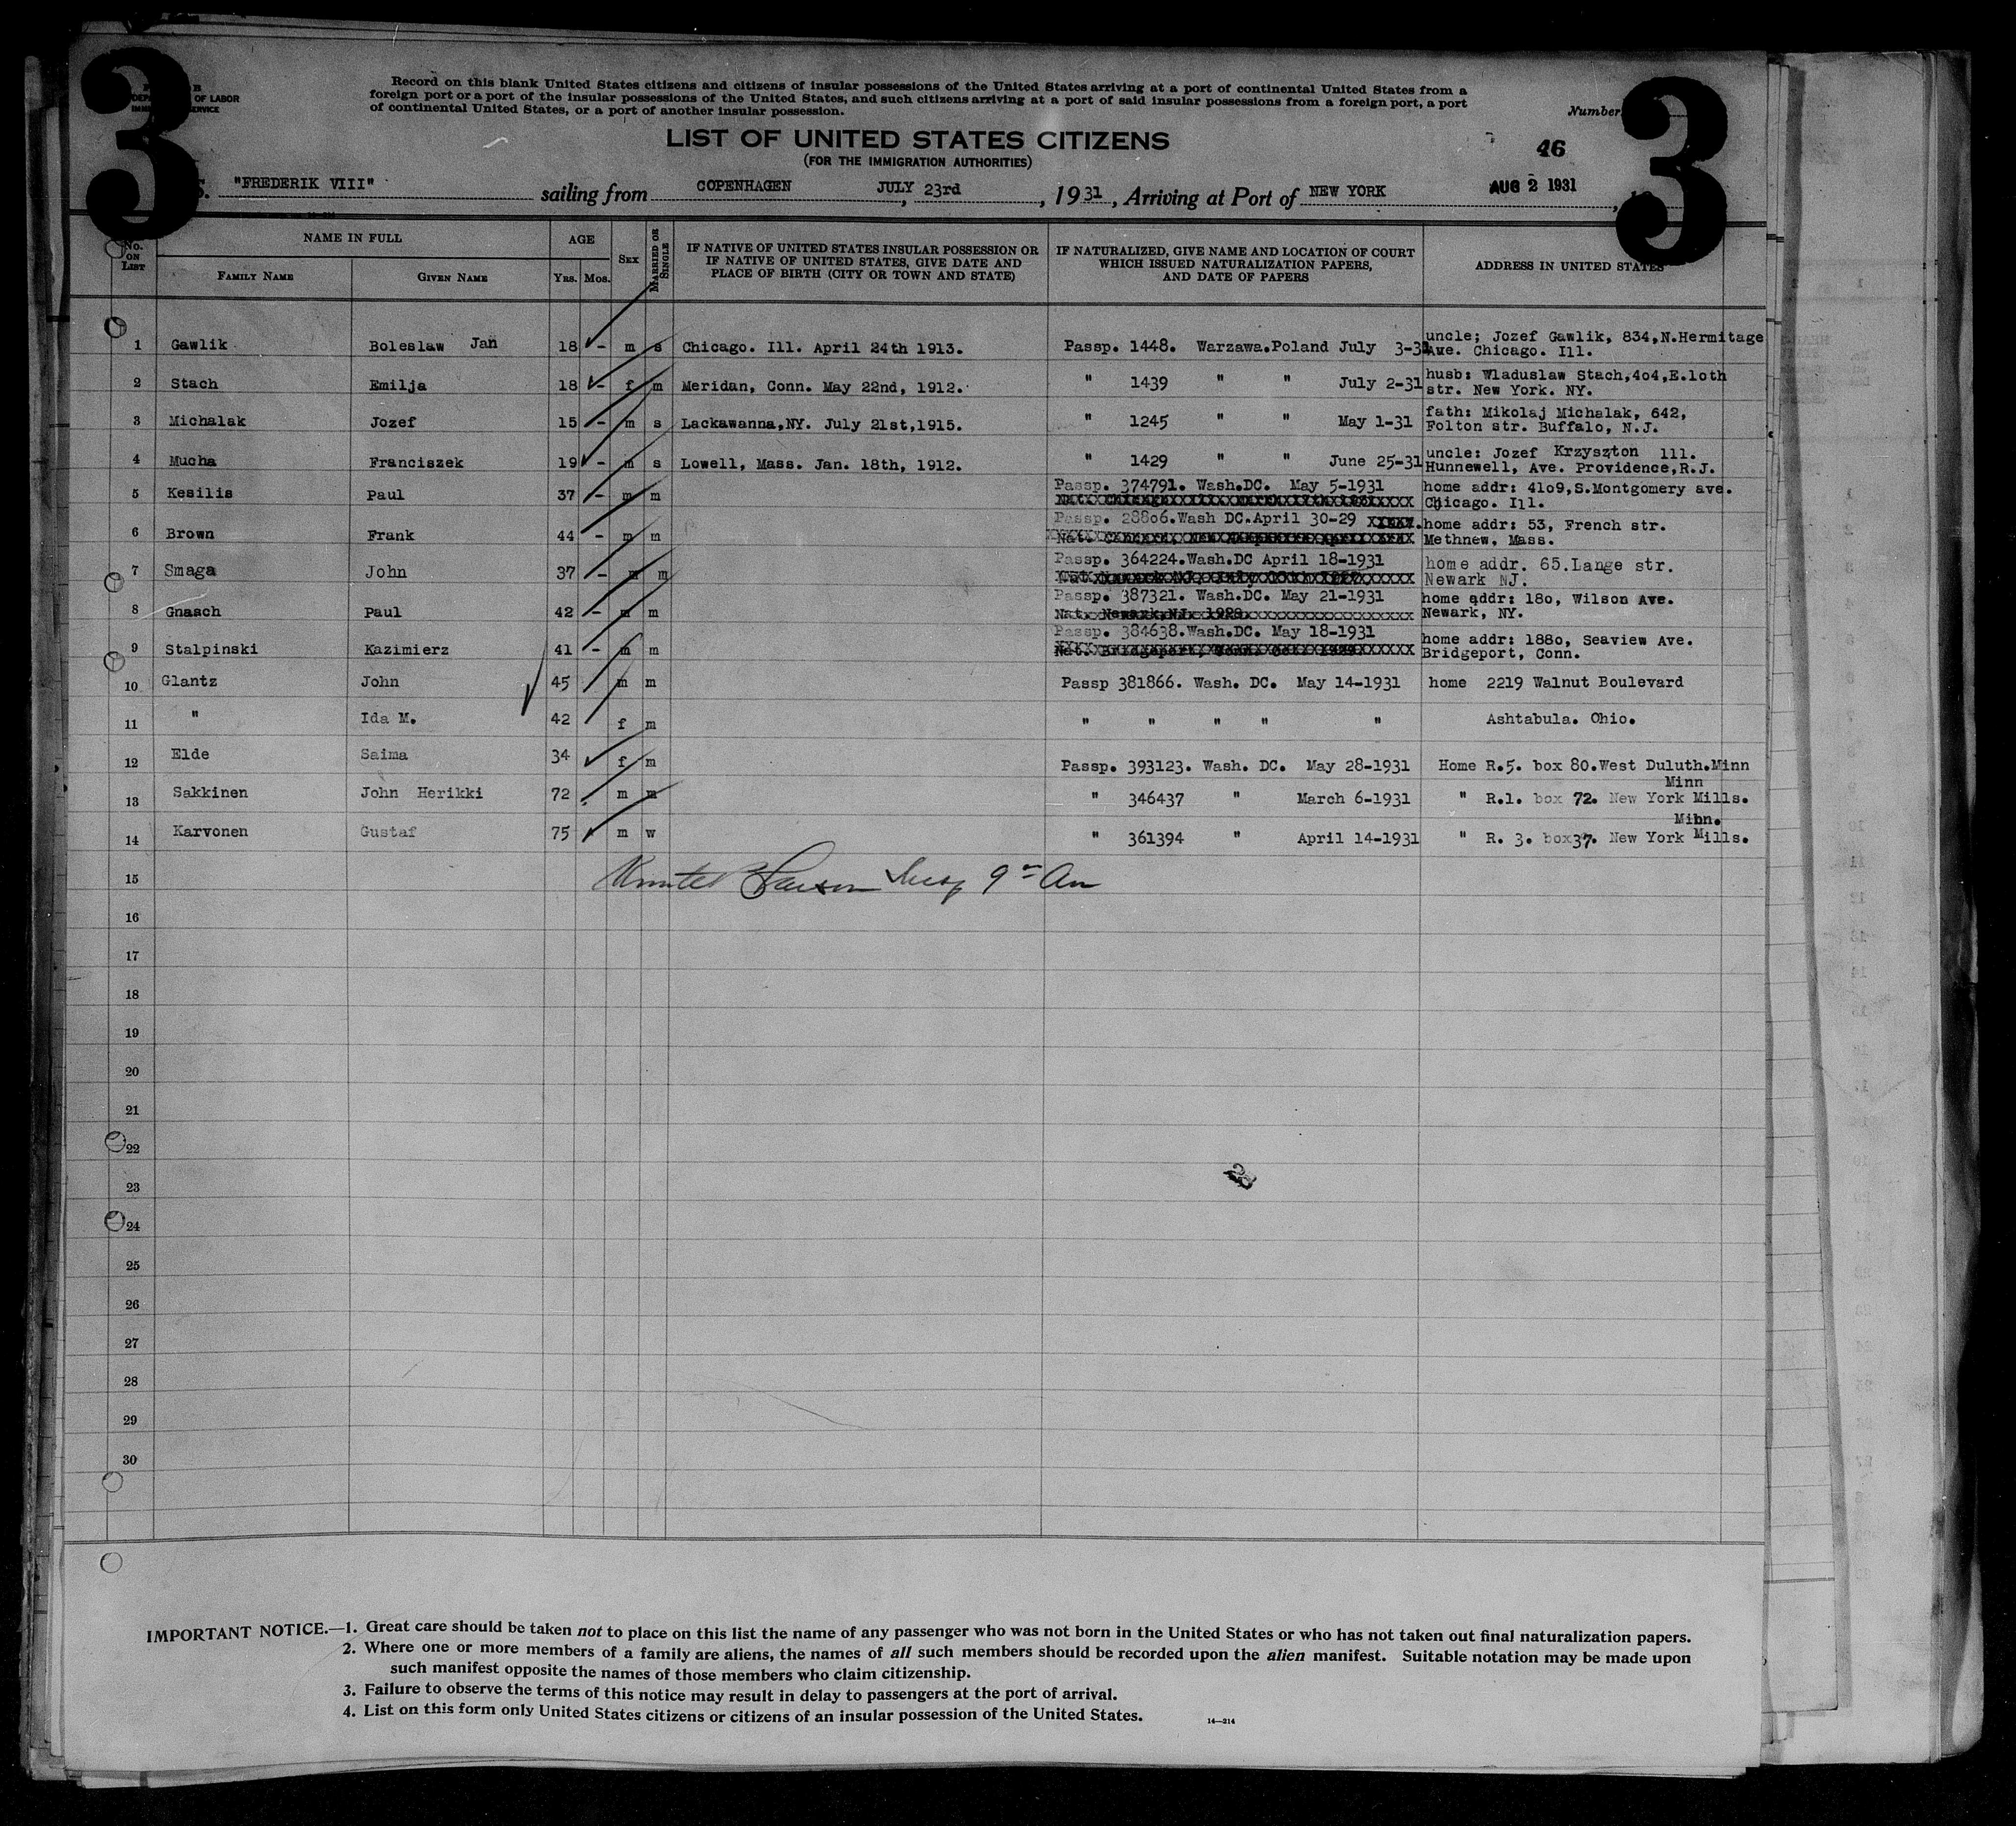 3
3
OF LABOR
SERVICE
Record on this blank United States citizens and citizens of insular possessions of the United States arriving at a port of continental United States from a
foreign port or a port of the insular possessions of the United States, and such citizens arriving at a port of said insular possessions from a foreign port, a port
of continental United States, or a port of another insular possession.
Number
LIST OF UNITED STATES CITIZENS
(FOR THE IMMIGRATION AUTHORITIES)
46
S. "FREDERIK VIII" sailing from COPENHAGEN, JULY 23rd, 1931, Arriving at Port of NEW YORK AUG 2 1931,
No. ON LIST
NAME IN FULL
FAMILY NAME
GIVEN NAME
AGE
Yrs. Mos.
SEX
MARRIED OR SINGLE
IF NATIVE OF UNITED STATES INSULAR POSSESSION OR
IF NATIVE OF UNITED STATES, GIVE DATE AND
PLACE OF BIRTH (CITY OR TOWN AND STATE)
IF NATURALIZED, GIVE NAME AND LOCATION OF COURT
WHICH ISSUED NATURALIZATION PAPERS,
AND DATE OF PAPERS
ADDRESS IN UNITED STATES
1 Gawlik Boleslaw Jan 18 - m s Chicago. Ill. April 24th 1913. Passp. 1448. Warzawa.Poland July 3-31 uncle; Jozef Gawlik, 834,N.Hermitage
Ave. Chicago. Ill.
2 Stach Emilja 18 - f m Meridan, Conn. May 22nd, 1912. " 1439 " " July 2-31 husb: Wladuslaw Stach,4o4,E.loth
str. New York. NY.
3 Michalak Jozef 15 - m s Lackawanna,NY. July 21st,1915. " 1245 " " May 1-31 fath: Mikolaj Michalak, 642,
Folton str. Buffalo, N.J.
4 Mucha Franciszek 19 - m s Lowell, Mass. Jan. 18th, 1912. " 1429 " " June 25-31 uncle: Jozef Krzyszton 111.
Hunnewell, Ave. Providence,R.J.
5 Kesilis Paul 37 - m m Passp. 374791. Wash.DC. May 5-1931 home addr: 41o9,S.Montgomery ave.
Chicago. Ill.
6 Brown Frank 44 - m m Passp. 288o6.Wash DC.April 30-29 home addr: 53, French str.
Methnew, Mass.
7 Smaga John 37 - m m Passp. 364224.Wash.DC April 18-1931 home addr. 65.Lange str.
Newark NJ.
8 Gnasch Paul 42 - m m Passp. 387321. Wash.DC. May 21-1931 home addr: 18o, Wilson Ave.
Nat. Newark,NJ. 1928 Newark, NY.
9 Stalpinski Kazimierz 41 - m m Passp. 384638.Wash.DC. May 18-1931 home addr: 188o, Seaview Ave.
Nat. Bridgeport, Bridgeport, Conn.
10 Glantz John 45 m m Passp 381866. Wash. DC. May 14-1931 home 2219 Walnut Boulevard
11 " Ida M. 42 f m " " " " " Ashtabula. Ohio.
12 Elde Saima 34 f m Passp. 393123. Wash. DC. May 28-1931 Home R.5. box 80.West Duluth.Minn
Minn
13 Sakkinen John Herikki 72 m m " 346437 " March 6-1931 " R.1. box 72. New York Mills.
Minn.
14 Karvonen Gustaf 75 m w " 361394 " April 14-1931 " R. 3. box37. New York Mills.
15
16
17
18
19
20
21
22
23
24
25
26
27
28
29
30
IMPORTANT NOTICE.—1. Great care should be taken not to place on this list the name of any passenger who was not born in the United States or who has not taken out final naturalization papers.
2. Where one or more members of a family are aliens, the names of all such members should be recorded upon the alien manifest. Suitable notation may be made upon
such manifest opposite the names of those members who claim citizenship.
3. Failure to observe the terms of this notice may result in delay to passengers at the port of arrival.
4. List on this form only United States citizens or citizens of an insular possession of the United States.
14—214